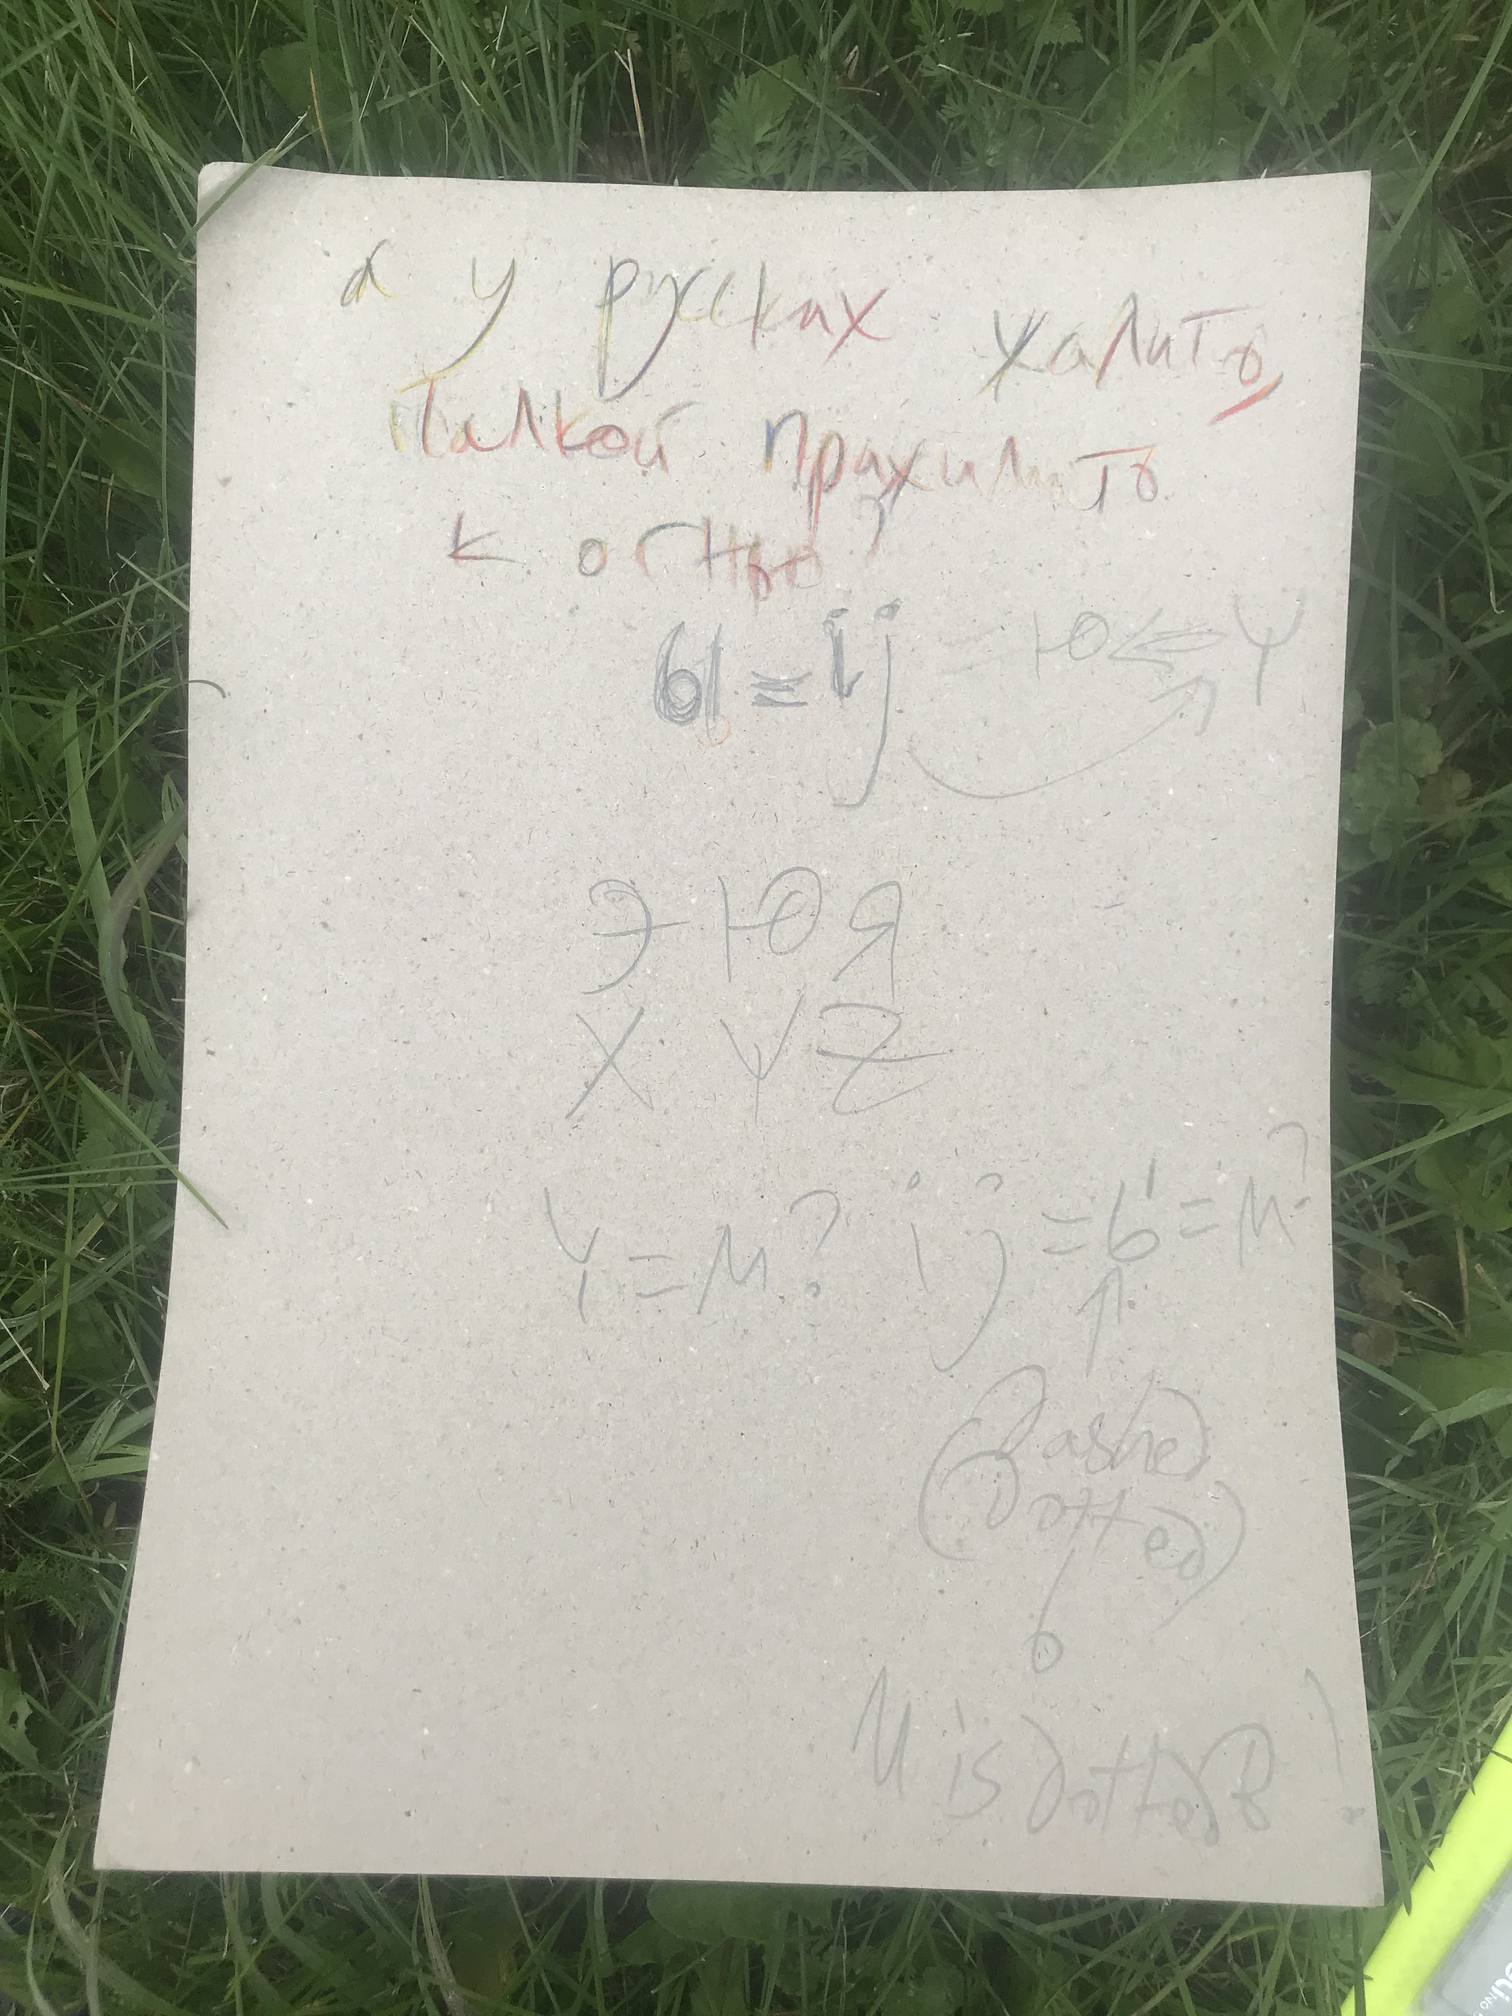 а у русских халить
палкой прихилить
к огнью?
Ы = ij = Ю <= Y
Э Ю Я
X Y Z
Y = И? ij = Ы = И?
(Dashed
Dotted)
И is dotted!